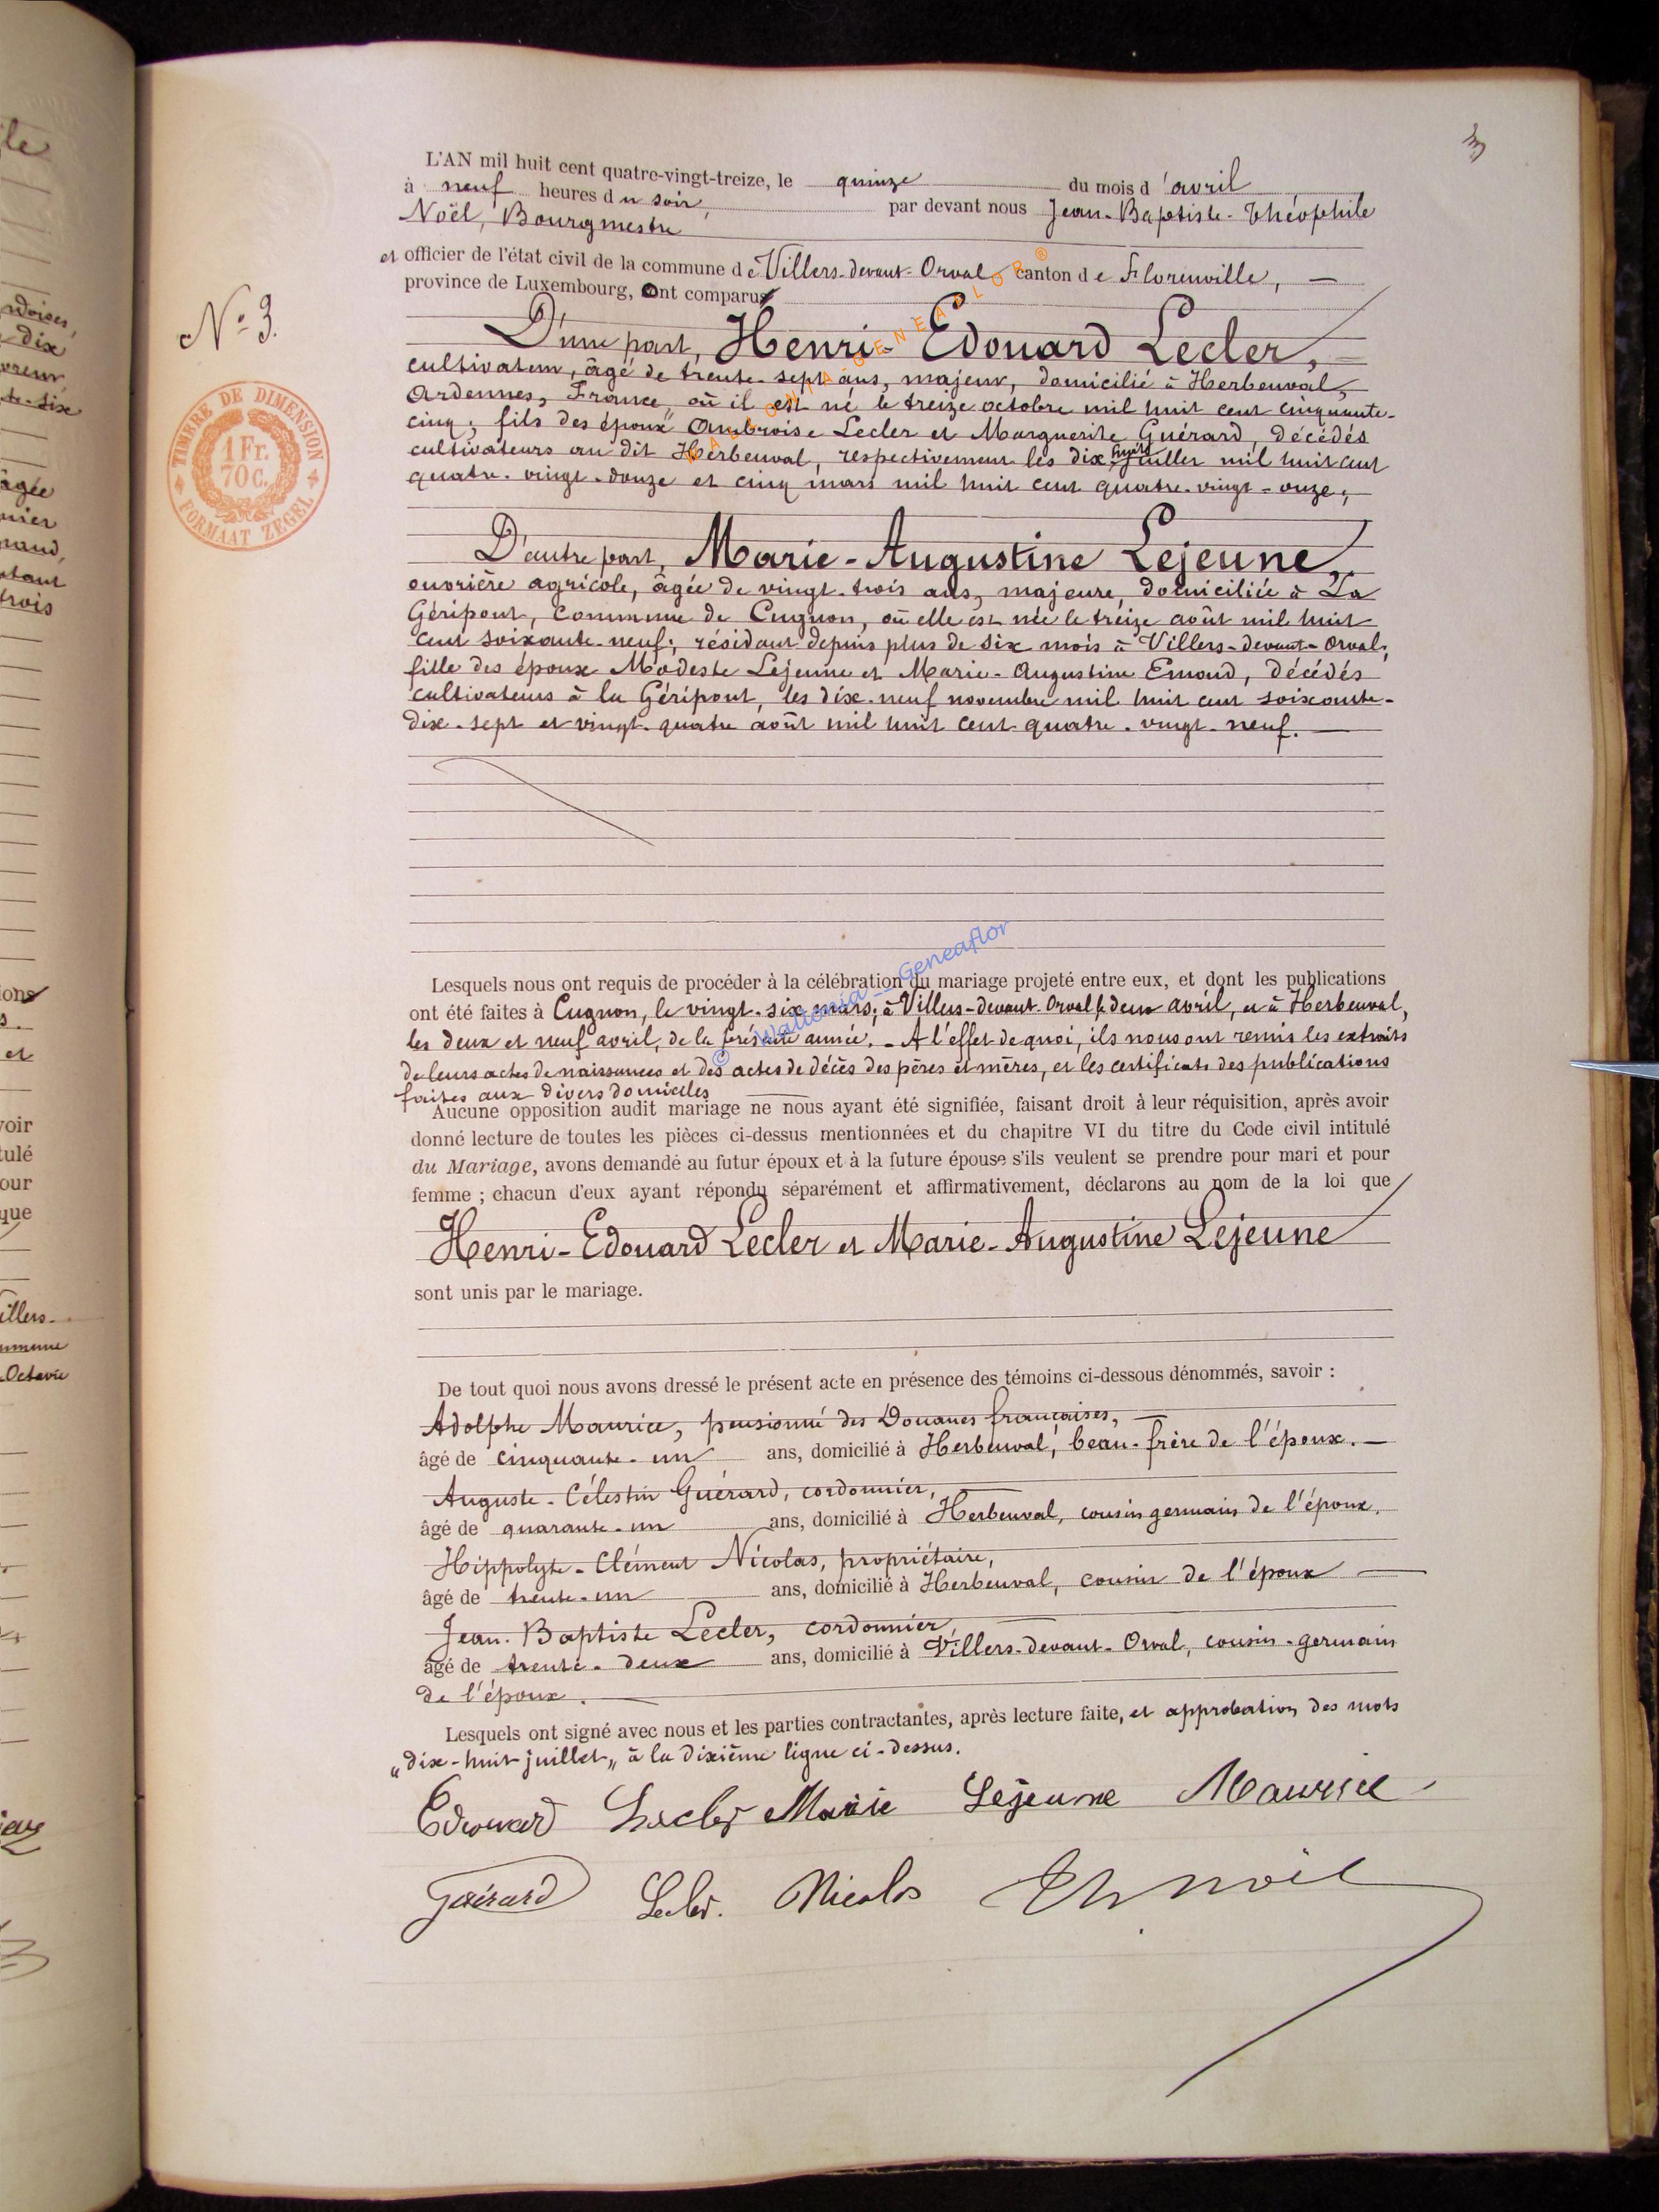 3
L'AN mil huit cent quatre-vingt-treize, le quinze du mois d'avril
à neuf heures du soir, par devant nous Jean-Baptiste-Théophile
Noël, Bourgmestre
et officier de l'état civil de la commune de Villers-devant-Orval, canton de Florenville,
province de Luxembourg, ont comparus
N° 3.
TIMBRE DE DIMENSION
1 Fr.
70 C.
FORMAAT ZEGEL
D'une part, Henri-Edouard Lecler,
cultivateur, âgé de trente-sept ans, majeur, domicilié à Herbeuval,
Ardennes, France, où il est né le treize octobre mil huit cent cinquante-
cinq; fils des époux Ambroise Lecler et Marguerite Guérard, décédés
cultivateurs au dit Herbeuval, respectivement les dix huit juillet mil huit cent
quatre-vingt-douze et cinq mars mil huit cent quatre-vingt-onze;
D'autre part, Marie-Augustine Lejeune,
ouvrière agricole, âgée de vingt-trois ans, majeure, domiciliée à La
Géripont, commune de Cugnon, où elle est née le treize août mil huit
cent soixante-neuf; résidant depuis plus de six mois à Villers-devant-Orval,
fille des époux Modeste Lejeune et Marie-Augustine Emond, décédés
cultivateurs à la Géripont, les dix-neuf novembre mil huit cent soixante-
dix-sept et vingt-quatre août mil huit cent quatre-vingt-neuf.
Lesquels nous ont requis de procéder à la célébration du mariage projeté entre eux, et dont les publications
ont été faites à Cugnon, le vingt-six mars; à Villers-devant-Orval le deux avril, et à Herbeuval,
les deux et neuf avril, de la présente année. - A l'effet de quoi, ils nous ont remis les extraits
de leurs actes de naissances et des actes de décès des pères et mères, et les certificats des publications
faites aux divers domiciles
Aucune opposition audit mariage ne nous ayant été signifiée, faisant droit à leur réquisition, après avoir
donné lecture de toutes les pièces ci-dessus mentionnées et du chapitre VI du titre du Code civil intitulé
du Mariage, avons demandé au futur époux et à la future épouse s'ils veulent se prendre pour mari et pour
femme ; chacun d'eux ayant répondu séparément et affirmativement, déclarons au nom de la loi que
Henri-Edouard Lecler et Marie-Augustine Lejeune
sont unis par le mariage.
De tout quoi nous avons dressé le présent acte en présence des témoins ci-dessous dénommés, savoir :
Adolphe Maurice, pensionné des Douanes françaises,
âgé de cinquante-un ans, domicilié à Herbeuval, beau-frère de l'époux.
Auguste-Célestin Guérard, cordonnier,
âgé de quarante-un ans, domicilié à Herbeuval, cousin germain de l'époux.
Hippolyte-Clément Nicolas, propriétaire,
âgé de trente-un ans, domicilié à Herbeuval, cousin de l'époux
Jean-Baptiste Lecler, cordonnier,
âgé de trente-deux ans, domicilié à Villers-devant-Orval, cousin-germain
de l'époux.
Lesquels ont signé avec nous et les parties contractantes, après lecture faite, et approbation des mots
„dix-huit juillet„ à la dixième ligne ci-dessus.
Edouard Lecler Marie Lejeune Maurice
Guérard Lecler. Nicolas Th Noël
WALLONIA GENEAFLOR ®
© Wallonia__Geneaflor